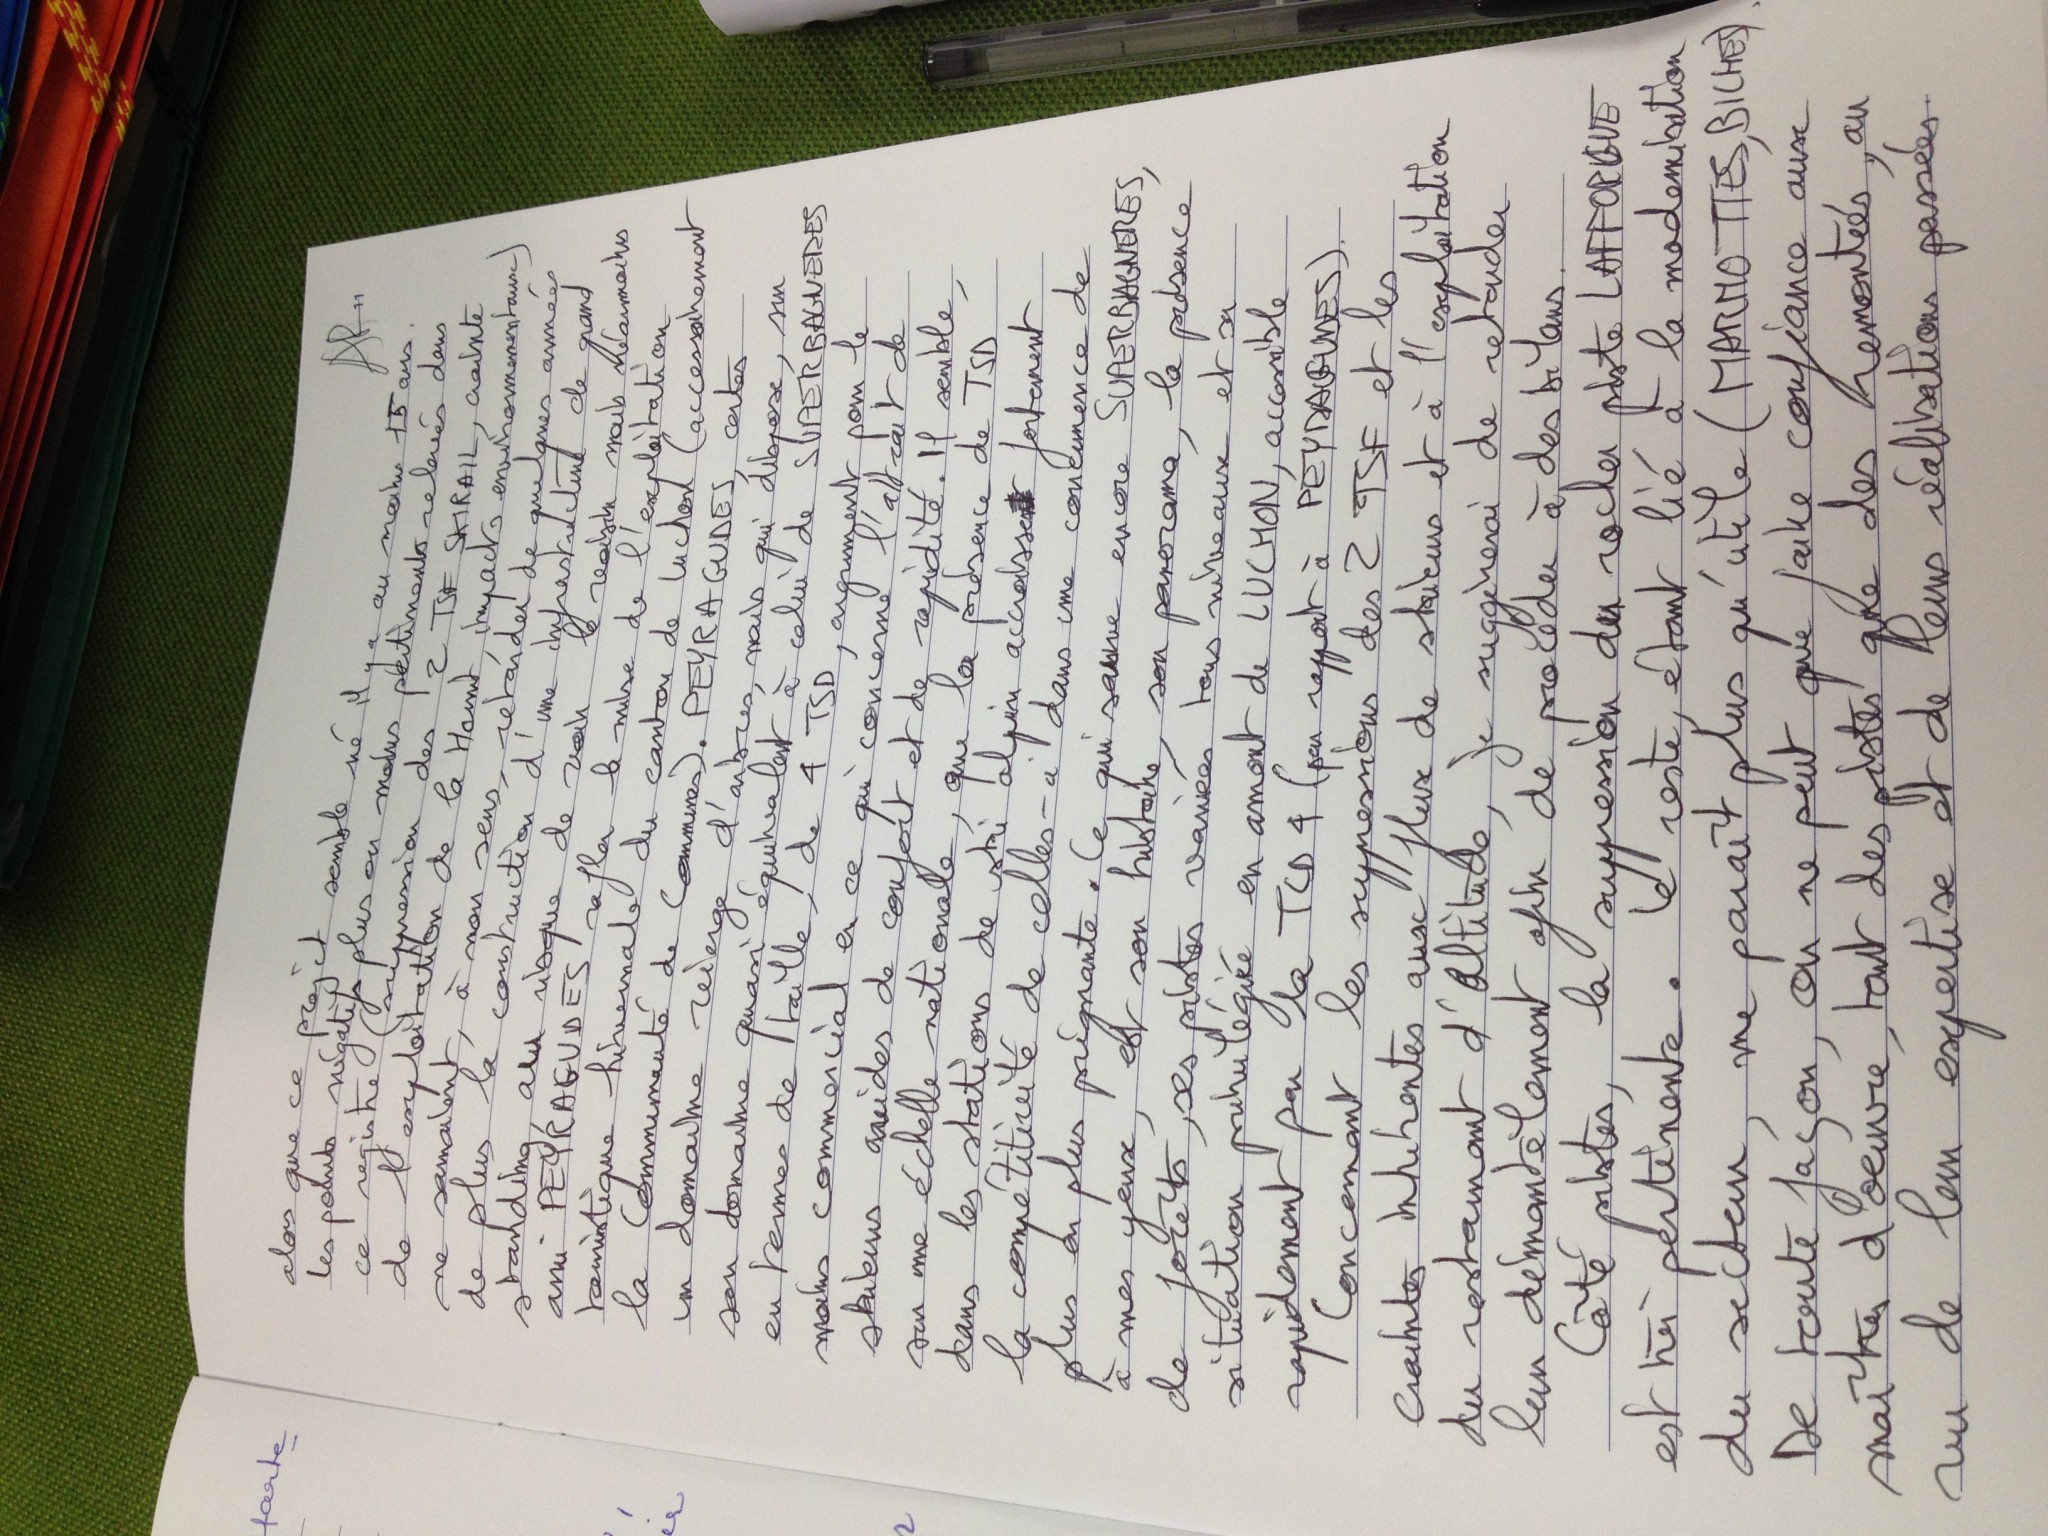 AR 11
alors que ce projet semble né il y a au moins 15 ans.
les points négatifs plus ou moins pertinents relevés dans
ce registre (suppression des 2 TSF SKIRAIL, crainte
de l'exploitation de la Hount, impacts environnementaux)
ne sauraient, à mon sens, retarder de quelques années
de plus la construction d'une infrastructure de grand
standing au risque de voir le voisin mais néanmoins
ami PEYRAGUDES rafler la mise de l'exploitation
touristique hivernale du canton de Luchon (accessoirement
la Communauté de Communes). PEYRAGUDES, certes
un domaine vierge d'arbres, mais qui dispose, sur
son domaine quasi équivalent à celui de SUPERBAGNERES
en termes de taille, de 4 TSD, argument pour le
moins commercial en ce qui concerne l'attrait de
skieurs avides de confort et de rapidité. Il semble,
sur une échelle nationale, que la présence de TSD
dans les stations de ski alpin accroisse fortement
la compétitivité de celles-ci dans une concurrence de
plus en plus prégnante. Ce qui sauve encore SUPERBAGNERES,
à mes yeux, est son histoire, son panorama, la présence
de forêts, ses pistes variées tous niveaux et sa
situation privilégiée en amont de LUCHON, accessible
rapidement par la TCD 4 (par rapport à PEYRAGUDES).
Concernant les suppressions des 2 TSF et les
craintes inhérentes aux flux de skieurs et à l'exploitation
du restaurant d'altitude, je suggérerai de retarder
leur démantèlement afin de procéder à des bilans.
Côté pistes, la suppression du rocher piste LAFFORGUE
est très pertinente. Le reste, étant lié à la modernisation
du secteur, me paraît plus qu'utile (MARMOTTES, BICHES).
De toute façon, on ne peut que faire confiance aux
maîtres d'oeuvre, tant des pistes que des remontées, au
vu de leur expertise et de leurs réalisations passées.
tarte